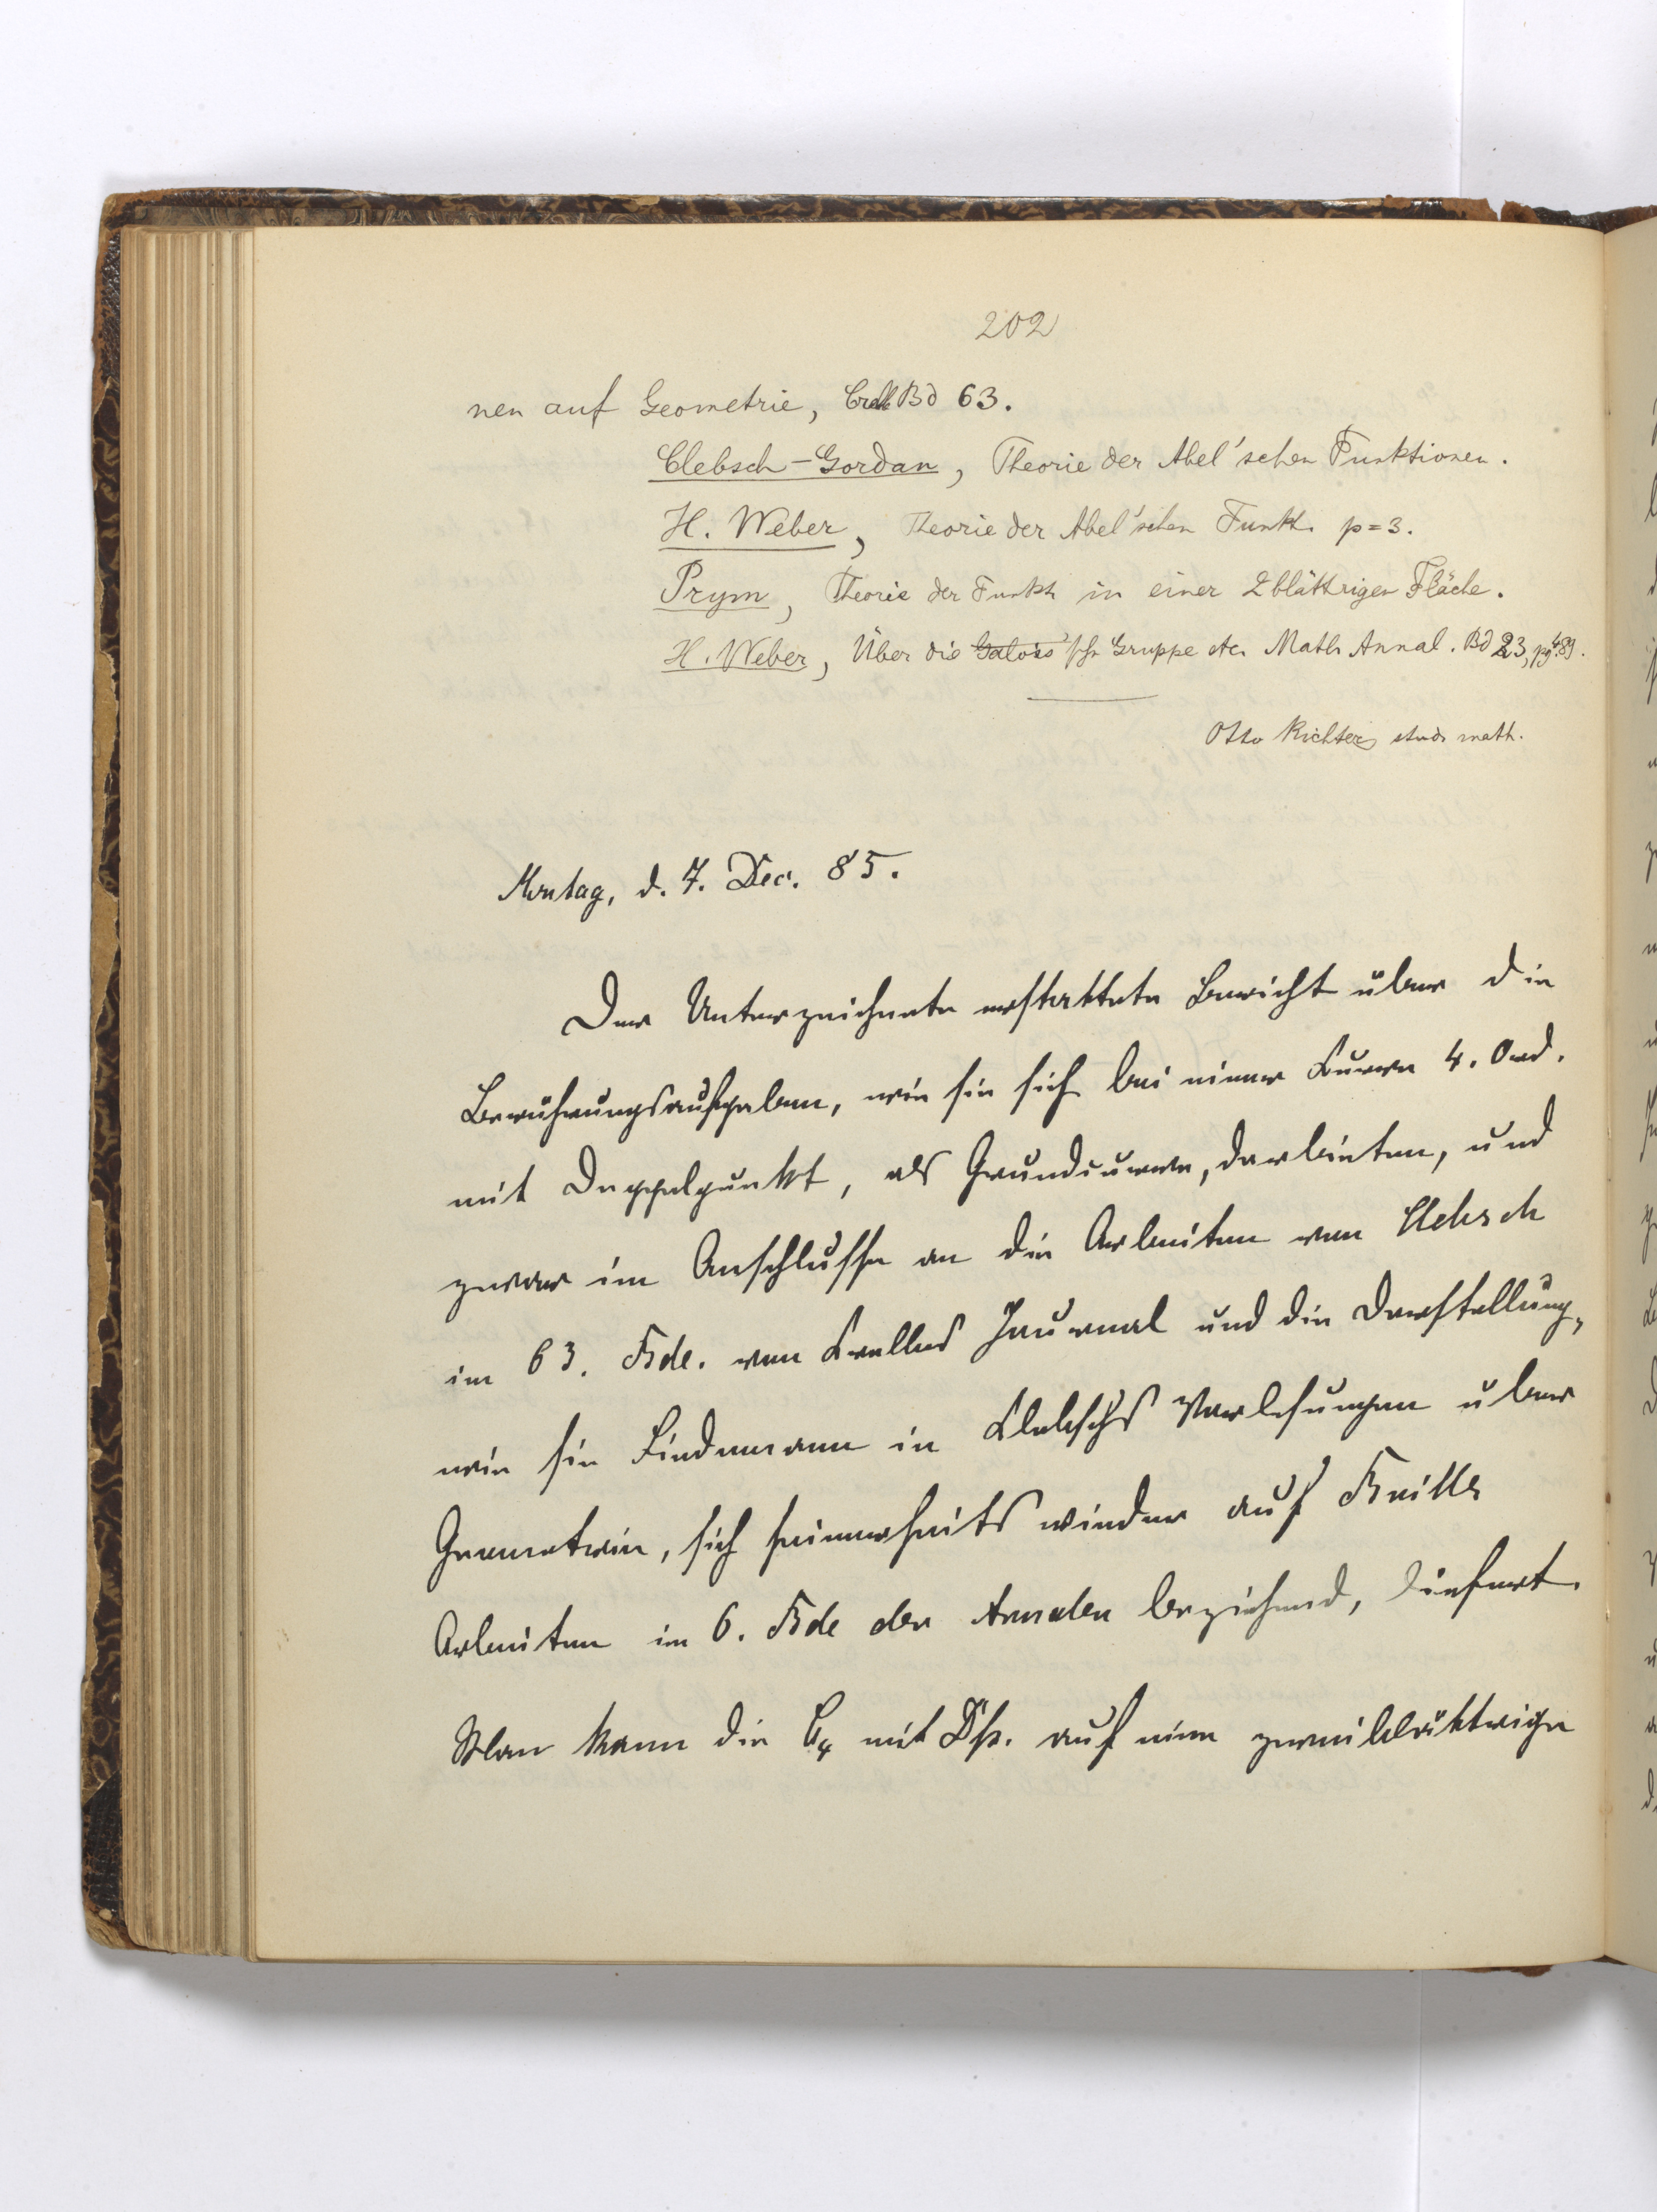 202
nen auf Geometrie, Crelle Bd 63.
Clebsch-Gordan, Theorie der Abel'schen Funktionen.
H. Weber, Theorie der Abel'schen Funkt. p=3.
Prym, Theorie der Funkt. in einer 2blättrigen Fläche.
H. Weber, Über die Galois'sche Gruppe etc. Math. Annal. Bd 23, pg 489.
Otto Richter, stud. math.
Montag, d. 7. Dec. 85.
Der Unterzeichnete erstattete Bericht über die
Berührungsaufgaben, wie sie sich bei einer Kurve 4. Ord.
mit Doppelpunkt, als Grundcurve, darbieten, und
zwar im Anschlusse an die Arbeiten von Clebsch
im 63. Bde. von Crelles Journal und die Darstellung,
wie sie Lindemann in Clebsch's Vorlesungen über
Geometrie, sich seinerseits wieder auf Brill's
Arbeiten im 6. Bde der Annalen beziehend, liefert.
Man kann die C4 mit Dp. auf eine zweiblättrige